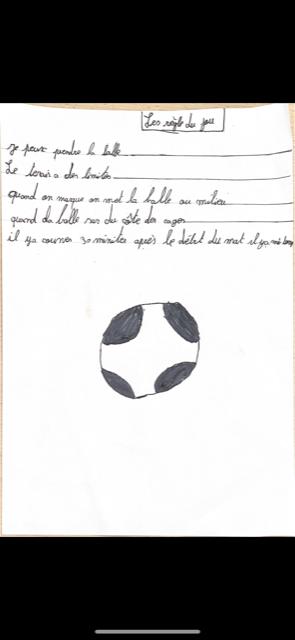 Les règle du jeu
je peux prendre la balle
Le terain a des limites
quand on marque on met la balle au milieu
quand la balle sur du côté des cages
il ya environ 30 minites après le début du mat il ya mi temp